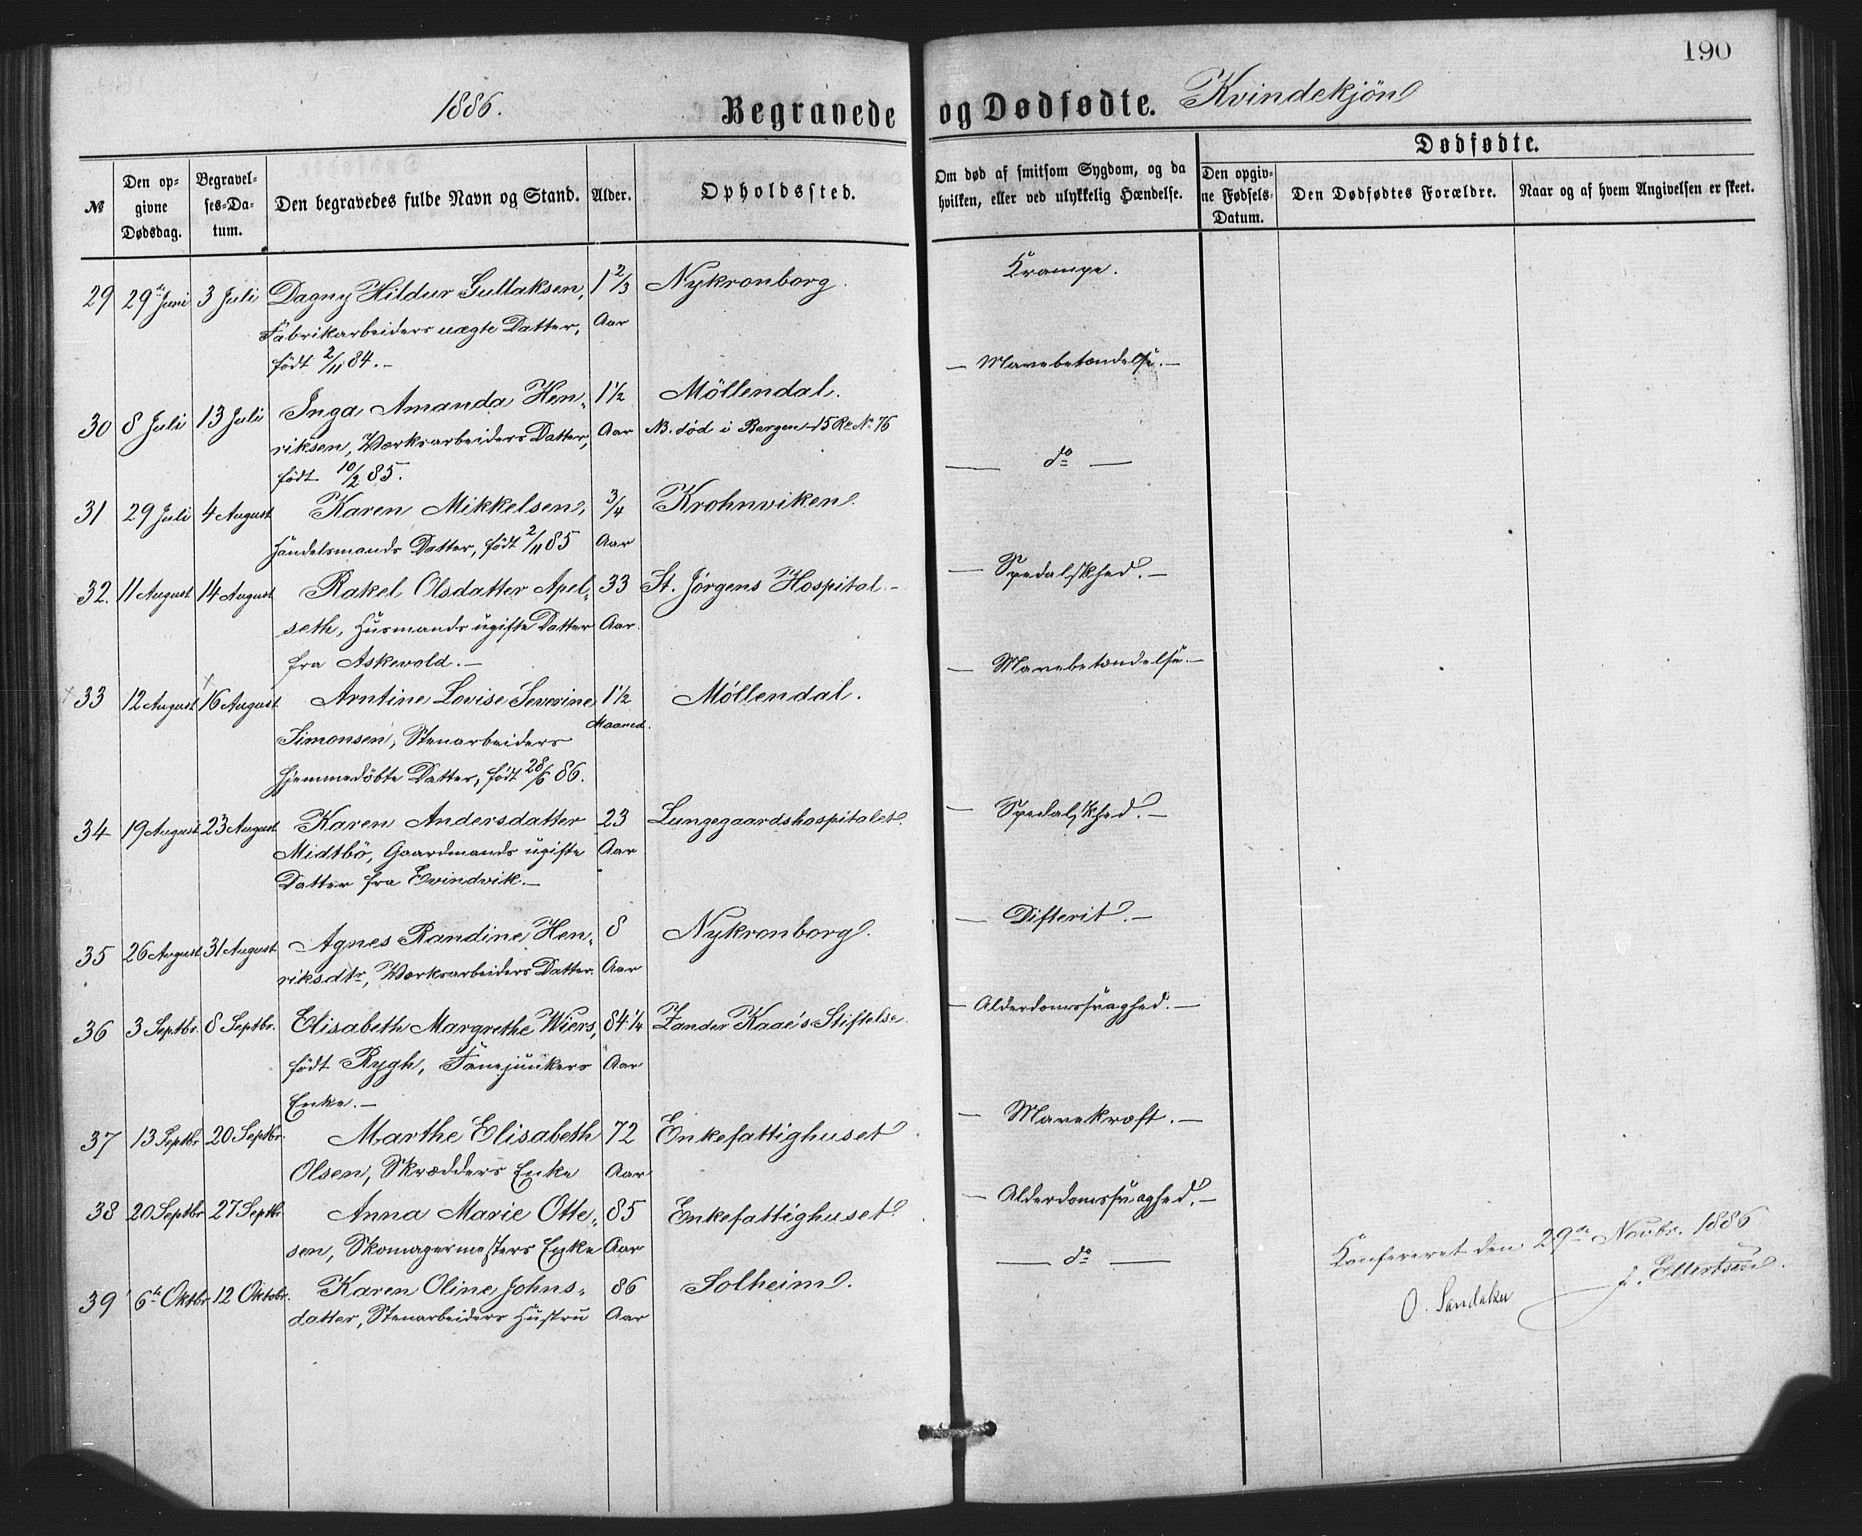 190
1886.
Begravede og Dødfødte. Kvindekjøn
№
Den opgivne Dødsdag.
Begravelses-Datum.
Den begravedes fulde Navn og Stand.
Alder.
Opholdssted.
Om død af smitsom Sygdom, og da hvilken, eller ved ulykkelig Hændelse.
Dødfødte.
Den opgivne Fødsels-Datum.
Den Dødfødtes Forældre.
Naar og af hvem Angivelsen er skeet.
29 29de Juni 3 Juli Dagny Hildur Gullaksen, 1 2/3 Nykronborg. Krampe.
Fabrikarbeiders uægte Datter, Aar
født 2/11 84.-
30 8 Juli 13 Juli Inga Amanda Hen- 1½ Möllendal. — Mavebetændelse. —
riksen, Værksarbeiders Datter, Aar NB. død i Bergen 15 Re No 76
født 10/2 85.
31 29 Juli 4 August Karen Mikkelsen, 3/4 Krohnviken. — do —
Handelsmands Datter, født 2/11 85 Aar
32. 11 August 14 August Rakel Olsdatter Apel- 33 St. Jørgens Hospital.- — Spedalskhed. —
seth, Husmands ugifte Datter Aar.
fra Askevold.—
33 12 August 16 August Arntine Lovise Severine 1½ Möllendal. — Mavebetændelse.—
Simonsen, Stenarbeiders Maaned.
hjemmedöbte Datter, født 28/6 86.
34 19 August 23 August Karen Andersdatter 23 Lungegaardshospitalet. — Spedalskhed. —
Midtbö, Gaardmands ugifte Aar
Datter fra Evindvik.—
35 26 August 31 August Agnes Randine Hen- 8 Nykronborg. — Difterit. —
riksdtr, Værksarbeiders Datter. Aar
36 3 Septbr. 8 Septbr. Elisabeth Margrethe Wiers, 84¼ Zander Kaaes Stiftelse. — Alderdomssvaghed. —
født Rygh, Fanejunkers Aar
Enke.—
37 13 Septbr 20 Septbr. Marthe Elisabeth 72 Enkefattighuset — Mavekræft. —
Olsen, Skrædders Enke Aar
38 20 Septbr 27 Septbr Anna Marie Otte- 85 Enkefattighuset. — Alderdomssvaghed. —
sen, Skomagermesters Enke Aar
39 6te Oktbr 12 Oktobr. Karen Oline Johns- 86 Solheim. — do —
datter, Stenarbeiders Hustru Aar
Konfereret den 29de Novbr. 1886
O. Sandaker J. Ellertsen.